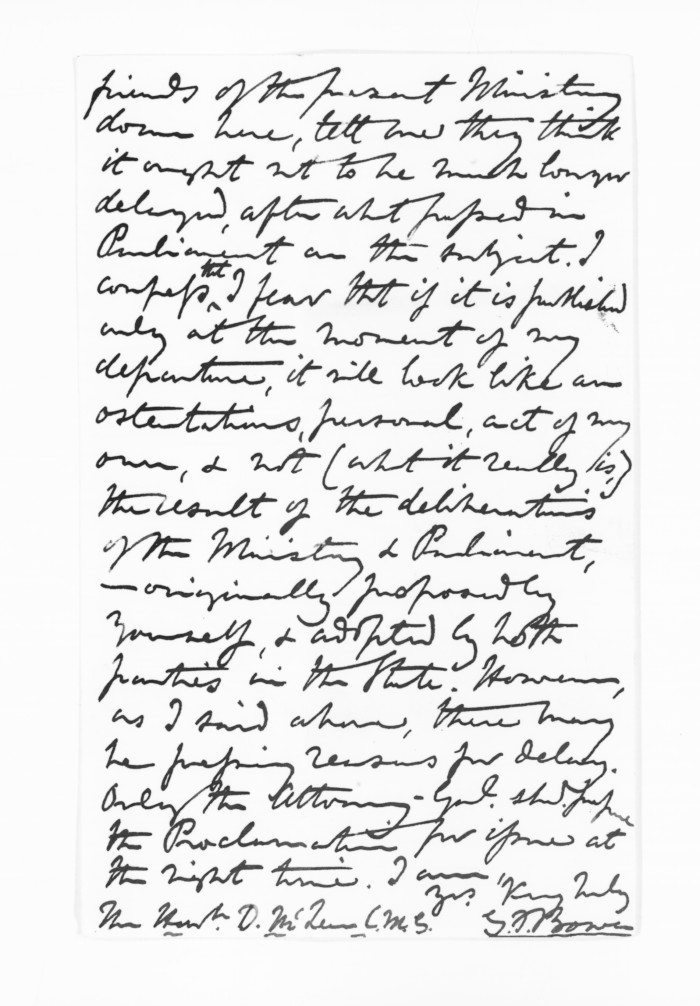 friends of the present Ministry
down here, tell me they think
it ought not to be much longer
delayed, after what passed in
Parliament on the subject. I
confess, that I fear that if it is published
only at the moment of my
departure, it will look like an
ostentatious, personal, act of my
own, & not (what it really is,)
the result of the deliberations
of the Ministry & Parliament,
— originally proposed by
yourself, & adopted by both
parties in the State. However,
as I said above, there may
be pressing reasons for delay.
Only the Attorney-Genl. shd. prepare
the Proclamation for issue at
the right time. I am,
yrs. very truly
The Honble. D. McLean C.M.G. G.F. Bowen